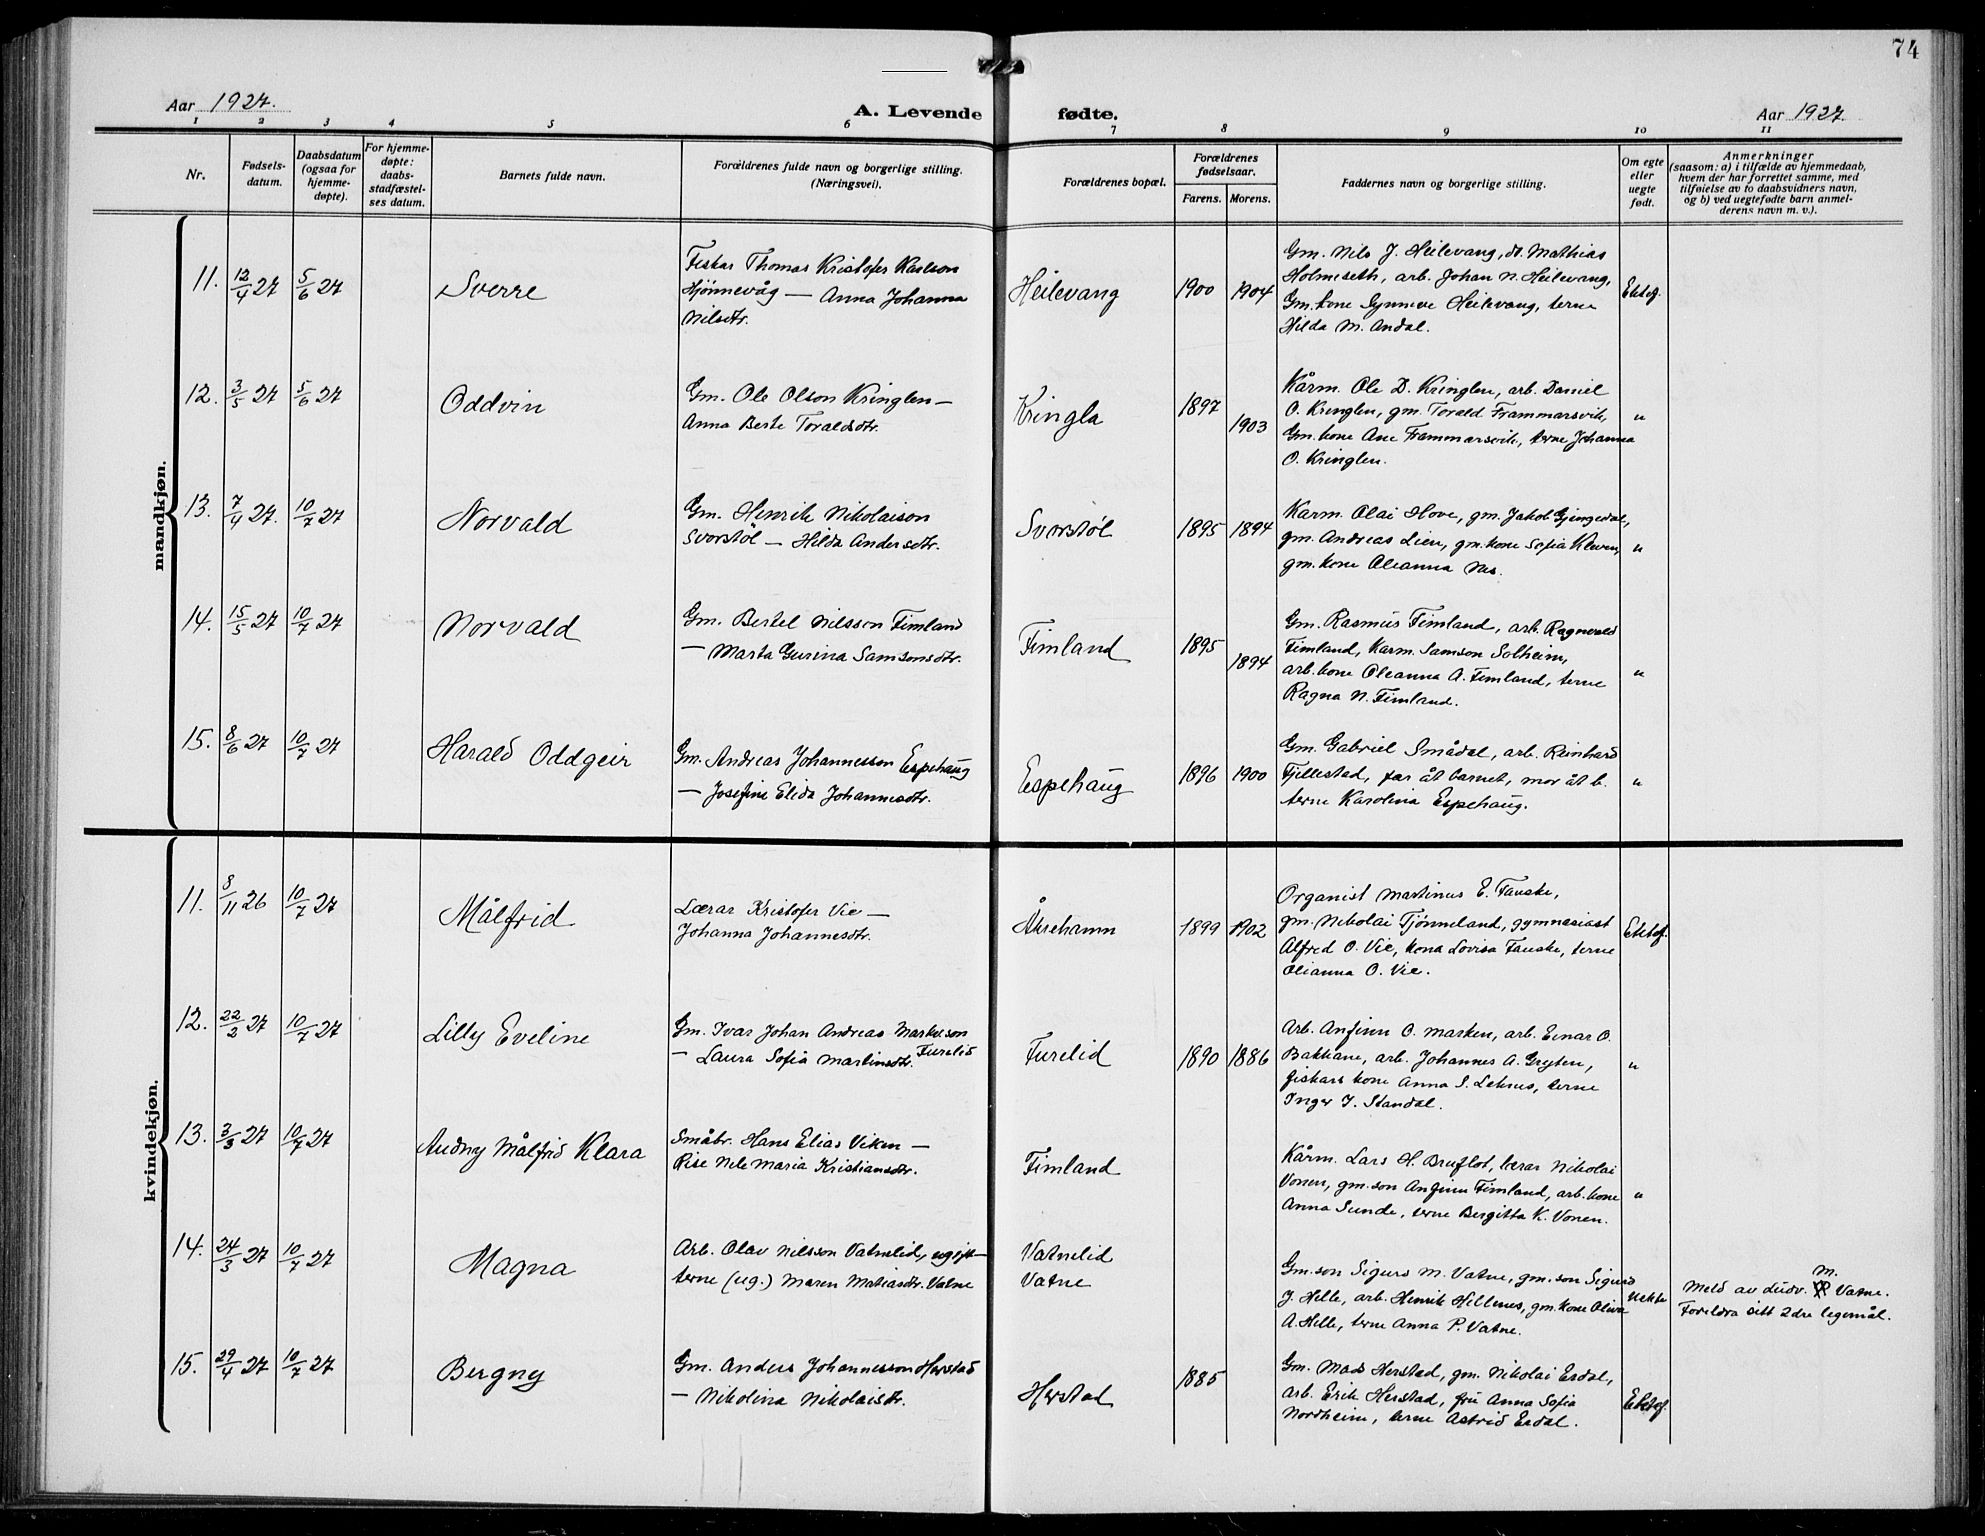 74
Aar 1927.
A. Levende fødte.
Aar 1927.
1 2 3 4 5 6 7 8 9 10 11
Nr.
Fødsels-
datum.
Daabsdatum
(ogsaa for
hjemme-
døpte).
For hjemme-
døpte:
daabs-
stadfæstel-
ses datum.
Barnets fulde navn.
Forældrenes fulde navn og borgerlige stilling.
(Næringsvei).
Forældrenes bopæl.
Forældrenes
fødselsaar.
Farens. Morens.
Faddernes navn og borgerlige stilling.
Om egte
eller
uegte
født.
Anmerkninger
(saasom: a) i tilfælde av hjemmedaab,
hvem der har forrettet samme, med
tilføielse av to daabsvidners navn,
og b) ved uegtefødte barn anmel-
derens navn m. v.).
mandkjøn.
11. 12/4 27 5/6 27 Sverre
Fiskar Thomas Kristofer Karlson
Hjønnevåg — Anna Johanna
Nilsdtr.
Heilevang 1900 1904
Gm. Nils J. Heilevang, Mathias
Holmeseth, arb. Johan N. Heilevang,
Gm. kone Synneve Heilevang, terne
Hilda M. Andal.
Ektef.
12. 3/5 27 5/6 27 Oddvin
Gm. Ole Olson Kringlen —
Anna Berte Toraldsdtr.
Kringla 1897 1903
Kårm. Ole D. Kringlen, arb. Daniel
O. Kringlen, gm. Torald Frammarsvik,
Gm. kone Ane Frammarsvik, terne Johanna
O. Kringlen.
"
13. 7/4 27. 10/7 27 Norvald
Gm. Henrik Nikolaison
Svorstøl — Hilda Andersdtr.
Svorstøl 1895 1894
Karm. Olai Hove, gm. Jakob Gjengedal,
gm. Andreas Lien, gm. kone Sofia Kleven,
gm. kone Oleanna Nes.
"
14. 15/5 27 10/7 27 Norvald
Gm. Bertel Nilsson Fimland
— Marta Gurina Samsonsdtr.
Fimland 1895 1894
Gm. Rasmus Fimland, arb. Ragnvald
Fimland, Karm. Samson Solheim,
arb. kone Oleanna A. Fimland, terne
Ragna N. Fimland.
"
15. 8/6 27 10/7 27 Harald Oddgeir
Gm. Andreas Johannesson Espehaug
— Josefine Elida Johannesdtr.
Espehaug 1896 1900
Gm. Gabriel Smådal, arb. Reinhard
Fjellestad, far åt barnet, mor åt b.
terne Karolina Espehaug.
"
kvindekjøn.
11. 8/11 26 10/7 27 Målfrid
Lærar Kristofer Vie —
Johanna Johannesdtr.
Åkrehamn 1899 1902
Organist Martinus E. Fauske,
gm. Nikolai Tjønneland, gymnasiast
Alfred O. Vie, kona Lovisa Fauske, terne
Olianna O. Vie.
Ektef.
12. 22/2 27 10/7 27 Lilly Eveline
Gm. Ivar Johan Andreas Markusson
— Laura Sofia Martinsdtr. Furelid
Furelid 1890 1886
Arb. Anfinn O. Marken, arb. Einar O.
Bakkane, arb. Johannes A. Gryten,
fiskars kone Anna S. Leknes, terne
Inger J. Standal.
"
13. 3/3 27 10/7 27 Audny Målfrid Klara
Småbr. Hans Elias Viken —
Rise Nele Maria Kristiansdtr.
Fimland
Kårm. Lars H. Bruflot, lærar Nikolai
Vonen, gm. son Anfinn Fimland, arb. kone
Anna Sunde, terne Bergitta K. Vonen.
"
14. 24/3 27 10/7 27 Magna
Arb. Olav Nilsson Vatnelid, ugift —
terne (ug.) Maren Matiasdtr. Vatne
Vatnelid
Vatne
Gm. son Sigurd M. Vatne, gm. son Sigurd
J. Helle, arb. Henrik Hellenes, gm. kone Oliva
A. Helle, terne Anna P. Vatne.
Uekte
m.
Meld av Ludv. Vatne.
Foreldra sitt 2dre legemål.
15. 29/4 27 10/7 27 Bergny
Gm. Anders Johannesson Herstad
— Nikolina Nikolaisdtr.
Herstad 1885
Gm. Mads Herstad, gm. Nikolai Erdal,
arb. Erik Herstad, fru Anna Sofia
Nordheim, terne Astrid Erdal.
Ektef.